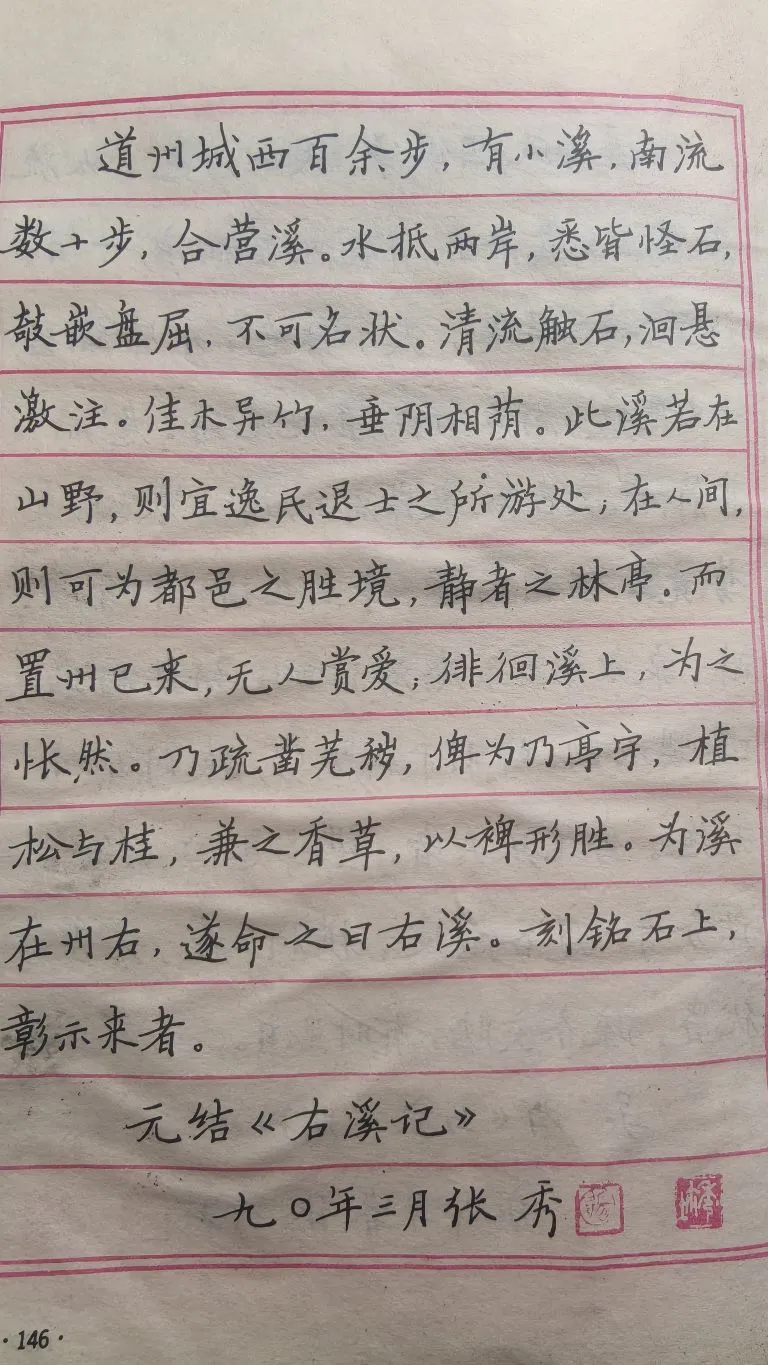 道州城西百余步，有小溪，南流
数十步，合营溪。水抵两岸，悉皆怪石，
攲嵌盘屈，不可名状。清流触石，洄悬
激注。佳木异竹，垂阴相荫。此溪若在
山野，则宜逸民退士之所游处；在人间，
则可为都邑之胜境，静者之林亭。而
置州已来，无人赏爱；徘徊溪上，为之
怅然。乃疏凿芜秽，俾为乃亭宇，植
松与桂，兼之香草，以裨形胜。为溪
在州右，遂命之曰右溪。刻铭石上，
彰示来者。
元结《右溪记》
九〇年三月张秀
·146·